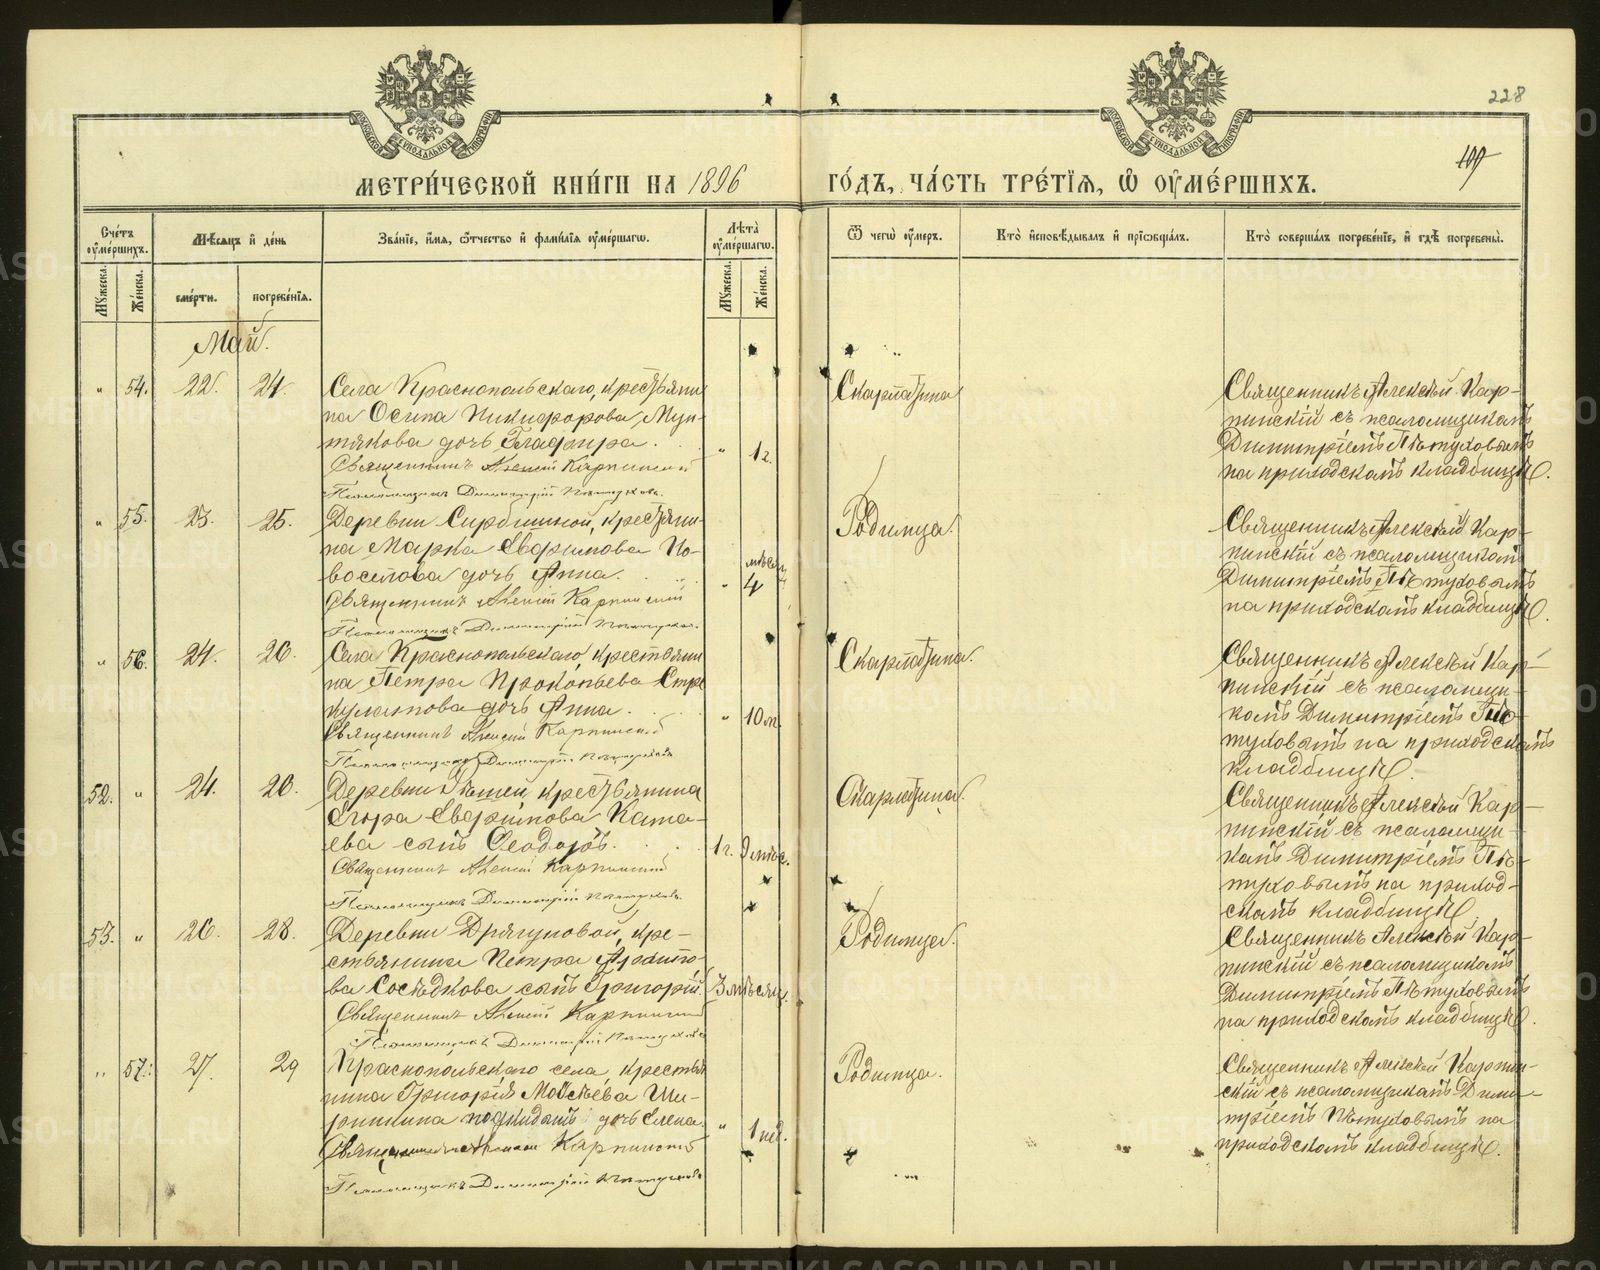 228
199
МЕТРИ́ЧЕСКОЙ КНИ́ГИ НА 1896 ГО́ДЪ, ЧА́СТЬ ТРЕ́ТІѦ, Ѿ ОУМЕ́РШИХЪ.
Сче́тъ оумершихъ.
Мꙋжеска.
Же́нска.
Мѣ́сяцъ и де́нь
сме́рти.
погребе́нїѧ.
Зва́нїе, и́мѧ, ѻ҆́тчество и фамилїѧ оуме́ршагѡ.
Лѣ́та оуме́ршагѡ.
Мꙋжеска.
Же́нска.
Ѿ чегѡ̀ оу́меръ.
Кто̀ исповѣ́дывалъ и прїѡбща́лъ.
Кто̀ соверша́лъ погребе́нїе, и гдѣ̀ погребены̀.
Май.
" 54. 22. 24.
Села Краснопольскаго, крестьяни-
на Осипа Никифорова Мун-
тякова дочь Глафира.
" 1 г.
Священникъ Алексій Карпинскій
Псаломщикъ Димитрій Пѣтуховъ.
Скарлатина
Священникъ Алексѣй Кар-
пинскій съ псаломщикомъ
Димитріемъ Пѣтуховымъ
на приходскомъ кладбищѣ.
" 55. 23. 25.
Деревни Сирбишной, крестьяни-
на Марка Евфимова Но-
воселова дочь Анна.
" 4 мѣсяц
Священникъ Алексій Карпинскій
Псаломщикъ Димитрій Пѣтуховъ.
Родимца.
Священникъ Алексѣй Кар-
пинскій съ псаломщикомъ
Димитріемъ Пѣтуховымъ
на приходскомъ кладбищѣ.
" 56. 24. 26.
Села Краснопольскаго, крестьяни
на Петра Прокопьева Стре
кулятова дочь Анна.
" 10 м.
Священникъ Алексій Карпинскій
Псаломщикъ Димитрій Пѣтуховъ
Скарлатина.
Священникъ Алексѣй Кар-
пинскій съ псаломщи-
комъ Димитріемъ Пѣ-
туховымъ на приходскомъ
кладбищѣ.
52. " 24. 26.
Деревни Лѣшей, крестьянина
Егора Евфимова Ката-
ева сынъ Ѳеодоръ.
1 г. 9 мѣс.
Священникъ Алексій Карпинскій
Псаломщикъ Димитрій Пѣтуховъ.
Скарлатина.
Священникъ Алексѣй Кар-
пинскій съ псаломщи-
комъ Димитріемъ Пѣ-
туховымъ на приход-
скомъ кладбищѣ.
53. " 26. 28.
Деревни Дрягуновой, кре-
стьянина Петра Архипо-
ва Сосѣдкова сынъ Григорій.
3 мѣсяц.
Священникъ Алексій Карпинскій
Псаломщикъ Димитрій Пѣтуховъ
Родимца.
Священникъ Алексѣй Кар-
пинскій съ псаломщикомъ
Димитріемъ Пѣтуховымъ
на приходскомъ кладбищѣ.
" 57. 27. 29
Краснопольскаго села, крестья
нина Григорія Моисѣева Ши-
ринкина подкидышъ дочь Елена.
" 1 нед.
Священникъ Алексій Карпинскій
Псаломщикъ Димитрій Пѣтуховъ
Родимца.
Священникъ Алексѣй Карпин-
скій съ псаломщикомъ Дими-
тріемъ Пѣтуховымъ на
приходскомъ кладбищѣ.